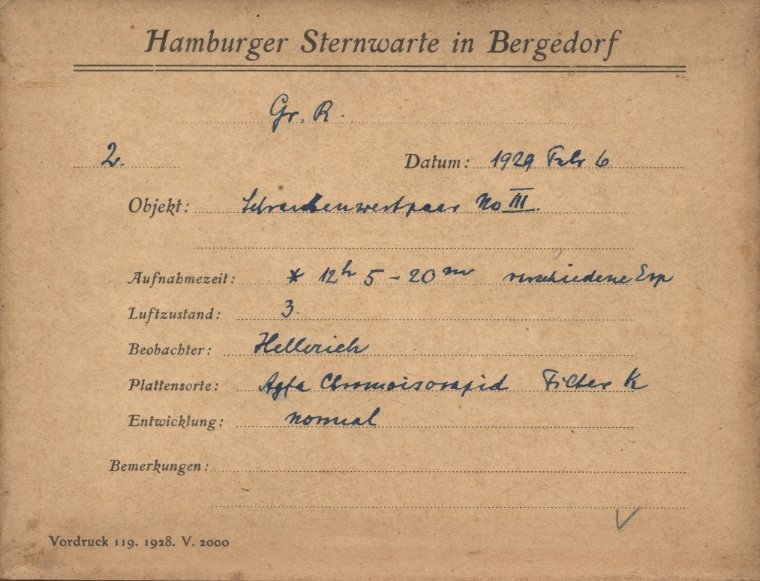 Hamburger Sternwarte in Bergedorf
Gr. R.
2. Datum: 1929 Febr 6
Objekt: Schraubenwertpaar No III.
Aufnahmezeit: * 12h 5 - 20m verschiedene Exp
Luftzustand: 3.
Beobachter: Hellerich
Plattensorte: Agfa Chromoisorapid Filter K
Entwicklung: normal
Bemerkungen:
Vordruck 119. 1928. V. 2000